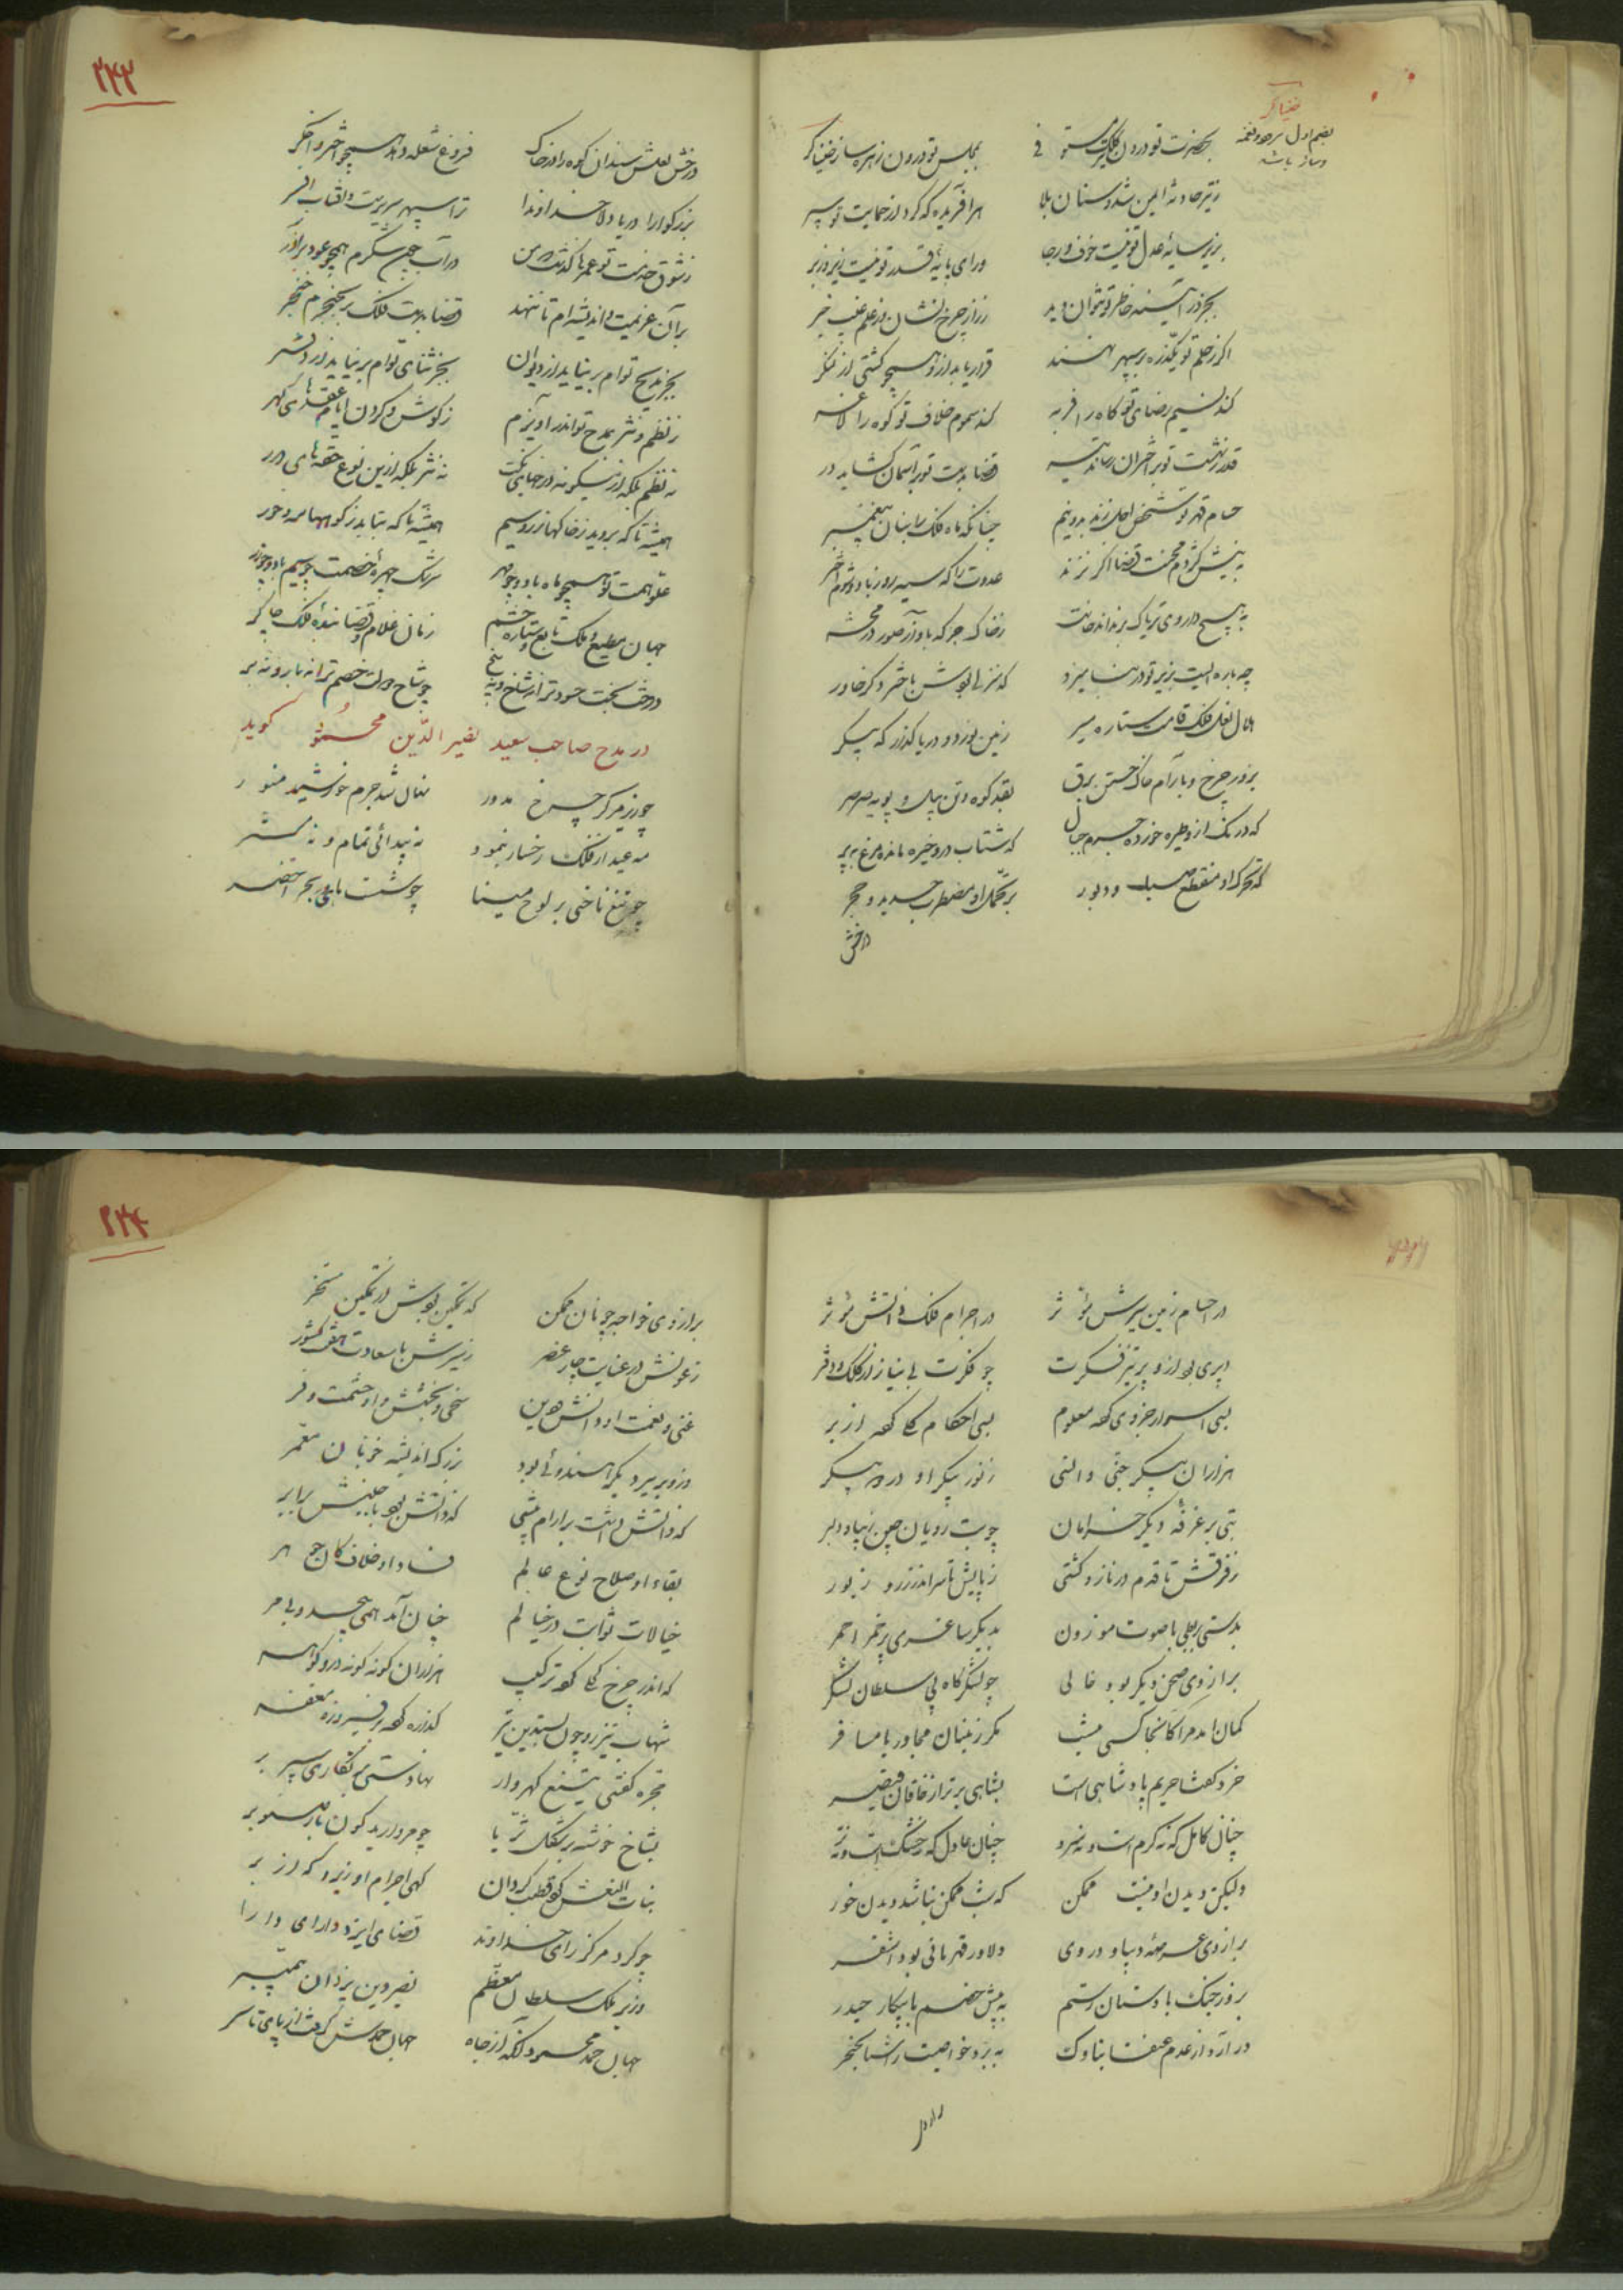 خنیاگر
بضم اول سرود و نغمه
و ساز باشد
بحضرت تو درون تیر مستوفی
بمجلس تو درون زهره ساز خنیاگر
ز تیر حادثه ایمن شد و سنان بلا
هر آفریده که کرد از حمایت تو سپر
بزیر سایهٔ عدل تو نیست خوف و رجا
ورای پایهٔ قدر تو نیست زیر و زبر
بجز در آینهٔ خاطر تو نتوان دید
ز راز چرخ نشان و ز علم غیب خبر
اگر ز حلم تو یکذره بر سپهر نهند
قرار یابد ازو همچو کشتی از لنگر
کند نسیم رضای تو کاه را فربه
کند سموم خلاف تو کوه را لاغر
قدر ز شست تو بر اختران رساند تیر
قضا بدست تو بر آسمان گشاید در
حسام قهر تو شخص اجل زند بدو نیم
چنانکه ماه فلک را بنان پیغمبر
به نیش کژدم محنت قضا اگر نزند
عدوت را که سیه روز باد و شوم اختر
به هیچ داروی تریاک بر نداند خاست
ز خاک جز که بآواز صور در محشر
چه باره ایست بزیر تو در بنامیزد
که منزلی بودش باختر دگر خاور
هلال نعل فلک قامت ستاره مسیر
زمین نورد و دریا گذر که پیکر
بزور چرخ و بآرام خاک و جستن برق
بقد کوه و تن پیل و پویه صرصر
که درنگ ازو طیره خورده جرم جبال
که شتاب درو خیره مانده مرغ بپر
که تحرک او منقطع صبا و دبور
بر تحمل او مضطرب حدید و حجر
درخش
۲۴۳
درخش نعلش سندان کوه را در خاک
فروغ شعله دهد همچو اختر و اخگر
بزرگوارا دریا دلا خداوندا
ترا سپهر سریر است و آفتاب افسر
ز شوق خدمت تو عمرها گذشت که من
در آب چون شکرم همچو عود بر آذر
بر آن عزیمت و اندیشه‌ام تا ننهد
قضا بدست فلک بر بحنجرم خنجر
بجز مدیح توام بر نیاید از دیوان
بجز ثنای توام بر نیاید از دفتر
ز نظم و نثر بمدح تو اندر آویزم
ز گوش و گردن ایام عقدهای گهر
نه نظم بلکه ازینگونه درجهای نکت
نه نثر بلکه ازین نوع حقه‌های درر
همیشه تا که بروید ز خاکها زر و سیم
همیشه تا که بتابد ز کوهها مه و خور
علو همت تو همچو ماه باد و چو مهر
سرشک چهرهٔ خصمت چو سیم باد و چو زر
جهان مطیع و فلک تابع و ستاره حشم
زمان غلام و قضا بنده و فلک چاکر
درخت بخت حسود ترا نه شاخ و نه بیخ
چو شاخ دولت خصم ترا نه بار و نه بر
در مدح صاحب سعید نصیر الدین محمود گوید
چو از مرکز چرخ مدور
نهان شد جرم خورشید منور
مه عید از فلک رخسار بنمود
نه پیدائی تمام و نه مستر
چو تیغ ناخنی بر لوح مینا
چو شست ماهی در بحر اخضر
در اجسام زمین سیرش مؤثر
در اجرام فلک ذاتش مؤثر
دبیری بود ازو برتر بفکرت
چو فکرت بی نیاز از کلک و دفتر
بسی اسرار جزوی کرده معلوم
بسی احکام کلی کرده از بر
هزاران پیکر جنی و انسی
ز نور پیکر او در دو پیکر
بتی بر غرفه دیگر خرامان
چو بت رویان چین زیبا و دلبر
ز فرقش تا قدم در ناز و کشی
ز پایش تا سر اندر زر و زیور
بدستی بربطی با صوت موزون
بدیگر ساغری پر خمر احمر
بر از وی صحن دیگر بود خالی
چو لشکرگاه بی سلطان لشکر
گمان آمد مرا کانجا کسی نیست
مگر ز بنان مجاور یا مسافر
خرد گفتا حریم پادشاهی است
بشاهی برتر از خاقان و قیصر
چنان کامل که نه گرم است و نه سرد
چنان عادل که نه خشک است و نه تر
ولیکن دیدن او نیست ممکن
که شب ممکن نباشد دیدن خور
بر از وی عرصه دیبا و در وی
دلاور قهرمانی بود اشقر
بروز جنگ با دستان رستم
به پیش خصم با پیکار حیدر
در آرد از عدم عنقا بناوک
ببرد خاصیت ز اشیا بخنجر
۲۴۴
بر از وی خواجه چونان ممکن
که تمکین بودش از تمکین مسخر
ز عونش در عنایت چار عنصر
ز سیرش با سعادت هفت کشور
غنی و نعمت او دانش و دین
سخی و بخشش او حشمت و فر
وزو بر تیر دیگر هندوئی بود
بزرگ اندیشه خوبان معمر
که ذاتش داشت بر آرام پیشی
که ذاتش بود با جنبش برابر
بقاء او صلاح نوع عالم
فساد او خلاف کان جوهر
خیالات ثوابت در خیالم
چنان آمد همی بیحد و بی مر
که اندر چرخ کحلی کرده ترکیب
هزاران گونه گونه در و گوهر
شهاب تیز رو چون بسدین تیر
گذر کرده بر پیروزه مغفر
مجره گفتی تیغ گهردار
نهادستی بزنگاری سپر بر
بشاخ خوشه بر شکل ثریا
چو مروارید گون بار صنوبر
بنات النعش گرد قطب گردان
گهی اجرام او زیر و گه از بر
چو گرد مرکز رای خداوند
قضای ایزد دارای داور
وزیر ملک سلطان معظم
نصیر دین یزدان پیمبر
جهان حمد محمود آنکه از جاه
جهان حمدش گرفت از پای تا سر